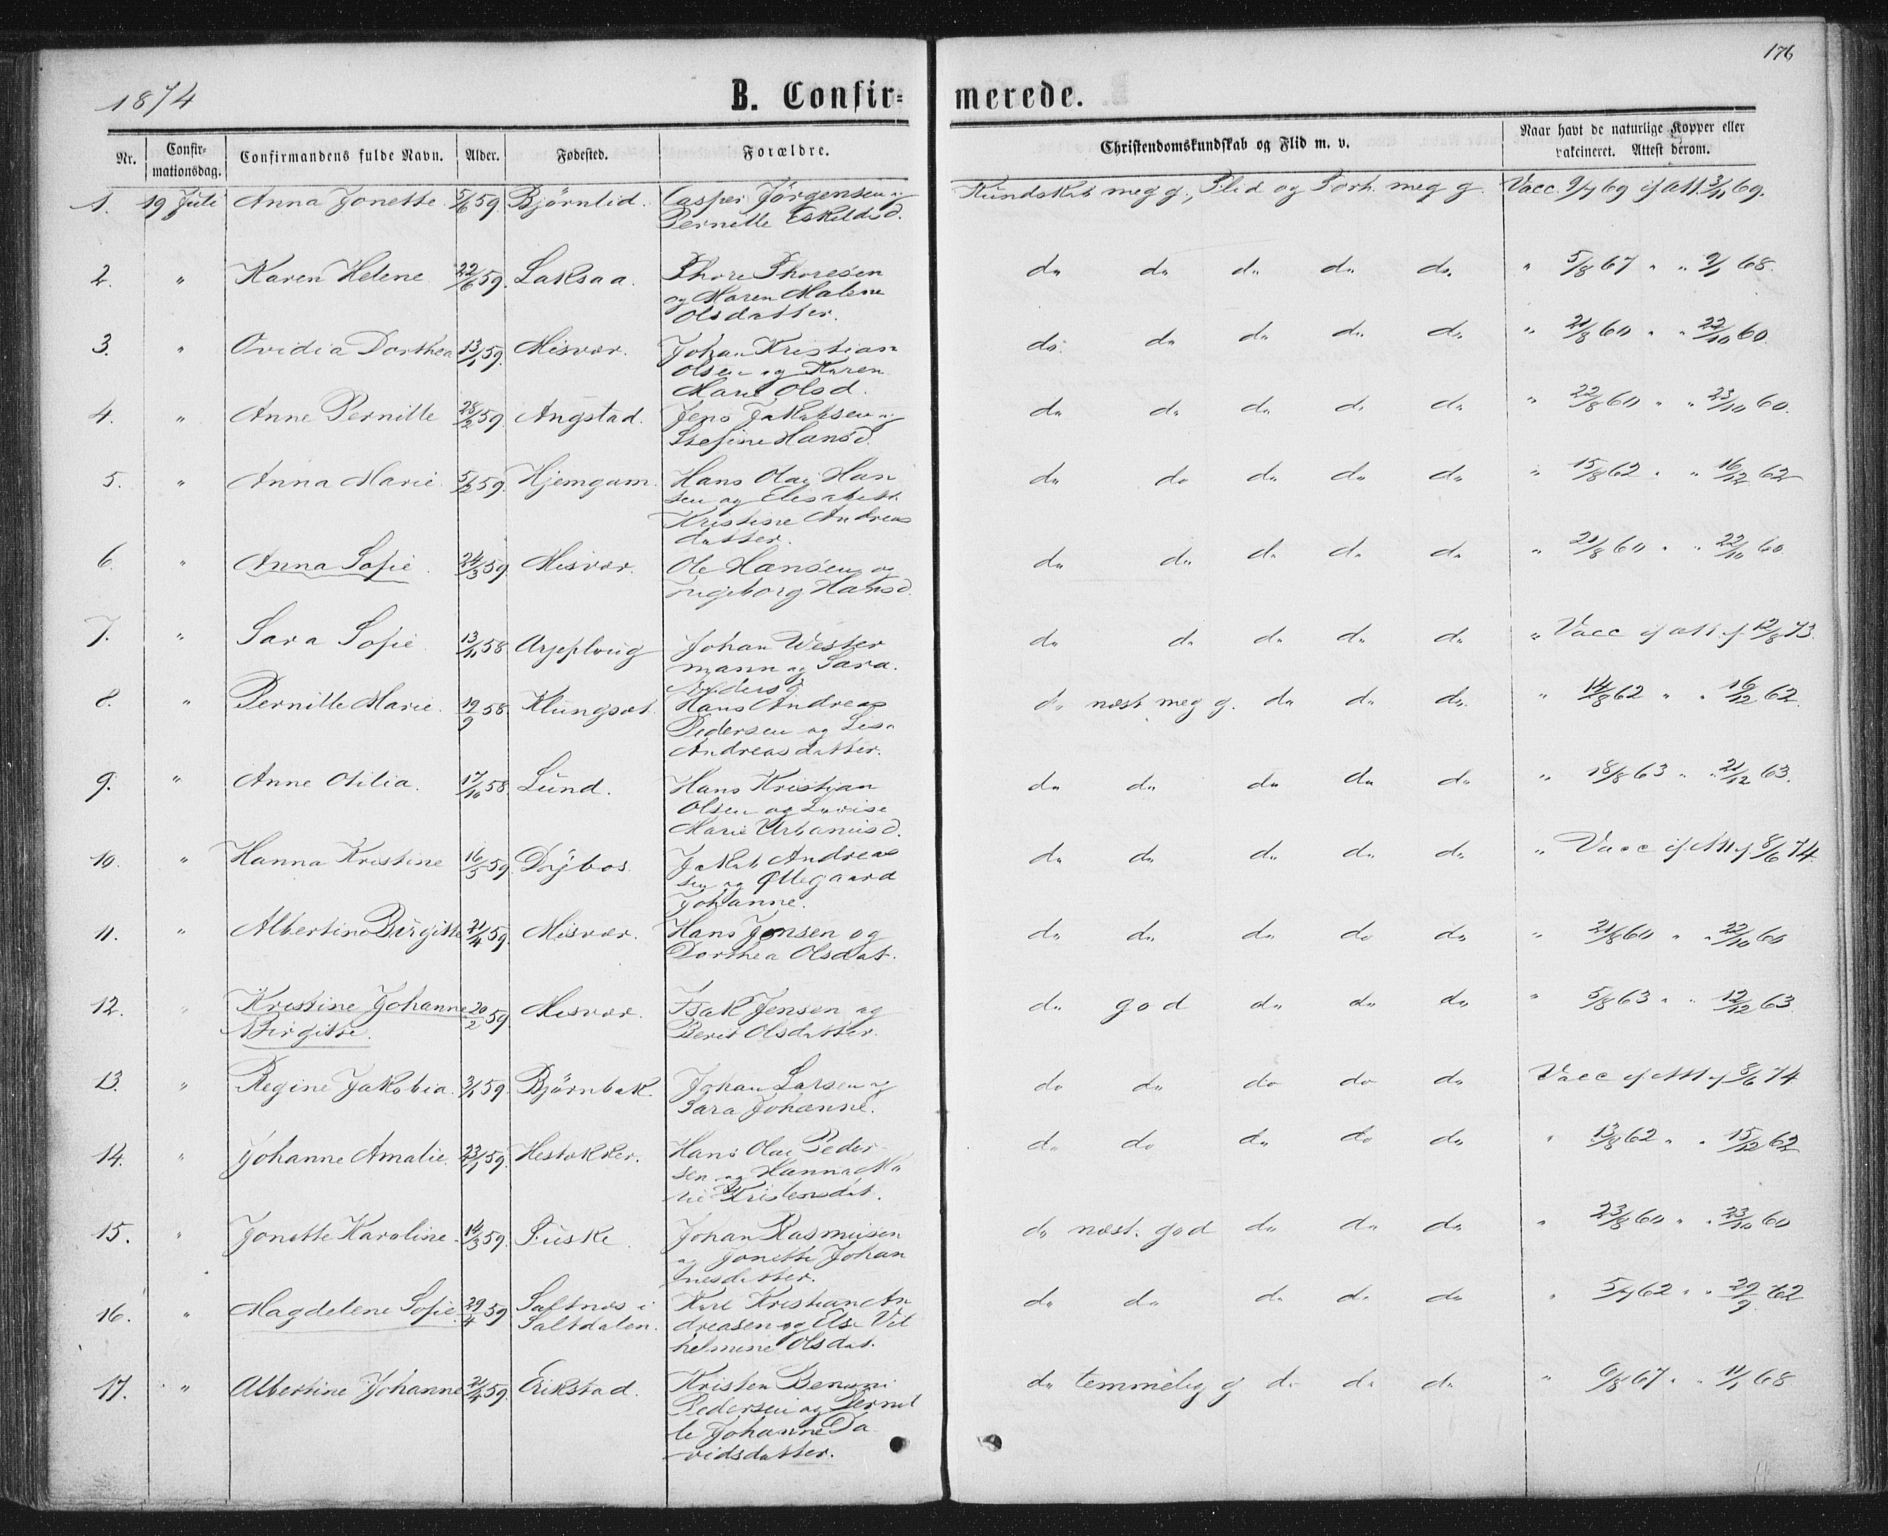 176
1874
B. Confirmerede.
Nr. Confirmationsdag. Confirmandens fulde Navn. Alder. Fødested. Forældre. Christendomskundskab og Flid m. v. Naar havt de naturlige Kopper eller vakcineret. Attest derom.
1. 19 Juli Anna Jonette 5/6 59. Bjørnlid. Casper Jørgensen og Kundskab meg g., Flid og Forh. meg g. Vacc 9/7 69 if att. 3/11 69.
Pernille Eskildsd.
2. " Karen Helene 22/6 59. Laksaa. Thore Thoresen do do do do do. " 5/8 67 " " 2/1 68.
og Maren Malene
Olsdatter.
3. " Ovidia Dorthea 13/1 59. Misvær. Johan Kristian do do do do do " 21/8 60 " " 22/10 60.
Olsen og Karen
Marie Olsd.
4. " Anne Pernille 28/2 59. Angstad. Jens Jakobsen og do do do do do " 22/8 60 " " 23/10 60.
Stefine Hansd.
5. " Anna Marie 5/2 59. Hjemgam. Hans Olai Han do do do do do " 15/8 62 " " 16/12 62
sen og Elisabeth
Kristine Andreas
datter.
6. " Anna Sofie 24/3 59. Misvær. Ole Hansen og do do do do do " 21/8 60 " " 22/10 60.
Ingeborg Hansd.
7. " Sara Sofie 13/11 58 Arjeploug Johan Wester do do do do do " Vacc if att. f 12/8 73.
mann og Sara
8. " Pernille Marie. 19/9 58. Klungset. Hans Andreas do næst meg g. do do do " 14/8 62 " " 16/12 62.
Pedersen og Lisa
Andreasdatter.
9. " Anne Otilia. 17/10 58. Lund. Hans Kristian do do do do do " 18/8 63 " " 21/12 63.
Olsen og Lovise
Marie Urbanusd.
10. " Hanna Kristine 16/5 59. Dybos. Jakob Andrea do do do do do " Vacc if Att f 8/6 74.
sen og Øllegaard
Johanne.
11. " Albertine Birgitte 21/4 59. Misvær. Hans Jensen og do do do do do " 21/8 60 " " 22/10 60
Dorthea Olsdat.
12. " Kristine Johanne 20/2 59. Misvær. Isak Jensen og do god do do do " 5/8 63 " " 12/12 63.
Birgitte. Berit Olsdatter.
13. " Regine Jakobia. 3/1 59. Bjørnbak. Johan Larsen og do do do do do Vacc if Att f 8/6 74
Sara Johanne.
14. " Johanne Amalie. 23/1 59. Hestokker. Hans Olai Peder do do do do do " 13/8 62 " " 15/12 62
sen og Hanna Ma
rie Kristensdat.
15. " Jonette Karoline. 14/3 59. Fuske. Johan Rasmusen do næst. god do do do " 23/8 60 " " 23/10 60
og Jonette Johan
nesdatter.
16. " Magdelene Sofie. 29/4 59. Saltnes i Karl Kristian An do do do do do " 5/7 62 " " 29/9 62
Saltdalen. dreasen og Else Vil
helmine Olsdat.
17. " Albertine Johanne 21/4 59. Erikstad. Kristen Benoni do temmelig g do do do " 6/8 67 " " 11/1 68
Pedersen og Pernil
le Johanne Da
vidsdatter.